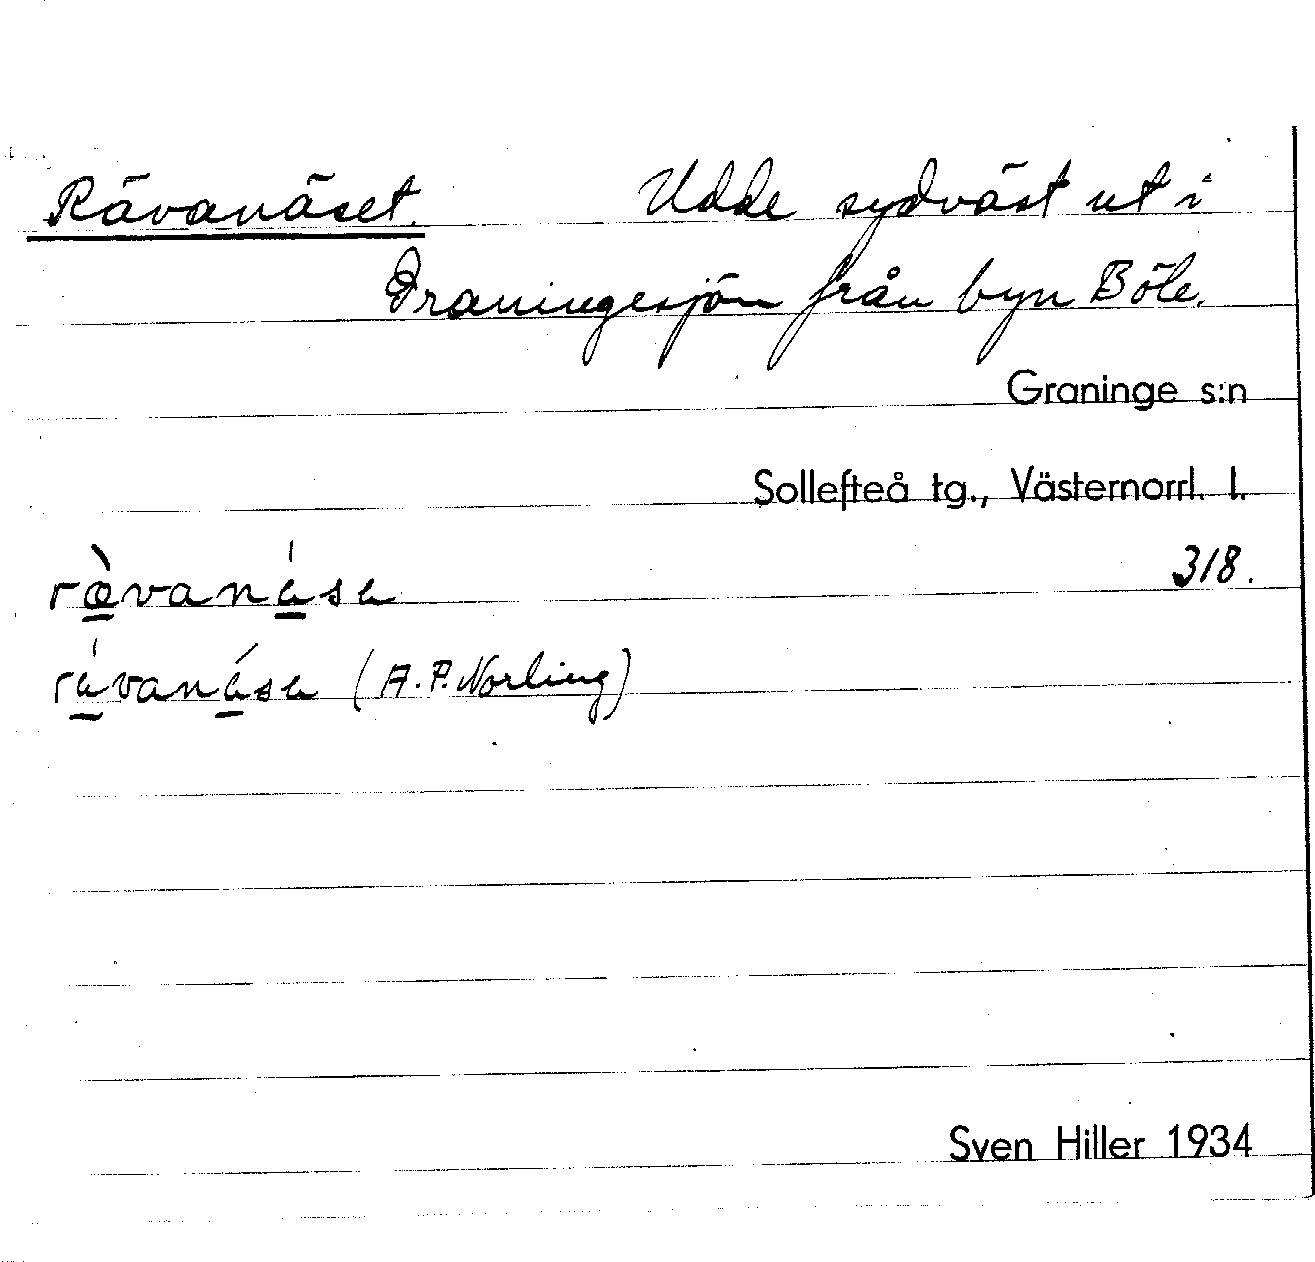 Rävanäset. Udde sydväst ut i
Graningesjön från byn Böle.
Graninge s:n
Sollefteå tg., Västernorrl. l.
318.
(A. P. Norling)
Sven Hiller 1934